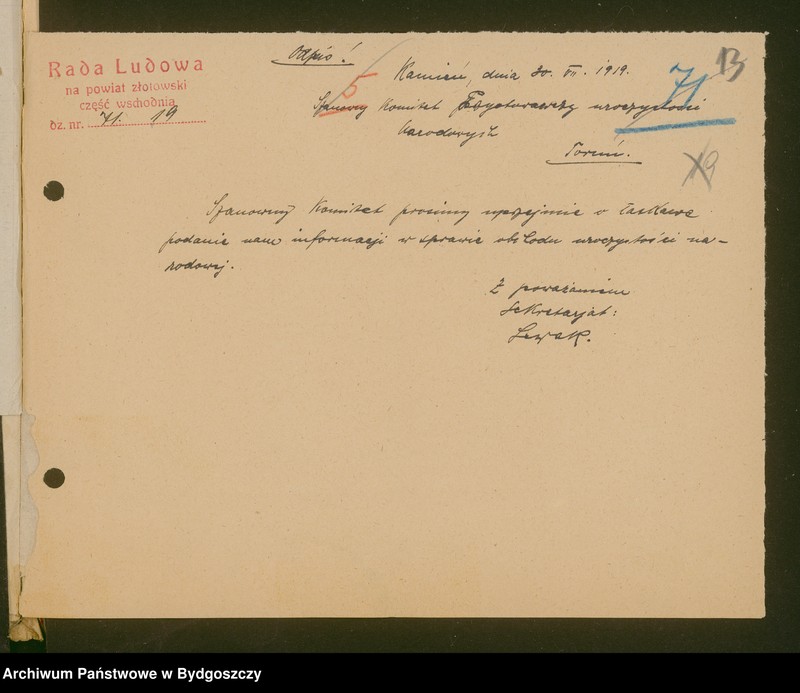 Rada Ludowa
na powiat złotowski
część wschodnia
dz. nr. 71. 19
Odpis!
Kamień, dnia 30. VII. 1919.
5
71
13
Szanowny Komitet uroczystości
Narodowych
Toruń.
19
Szanowny Komitet prosimy uprzejmie o łaskawe
podanie nam informacji w sprawie obchodu uroczystości na-
rodowej.
Z poważaniem
Sekretarjat:
Archiwum Państwowe w Bydgoszczy